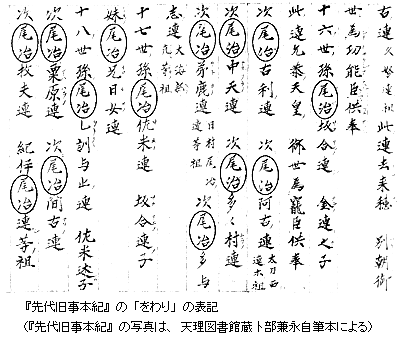 右連 久努連祖 此連去来穂 別朝御
世為功能臣供奉
十六世孫尾治坂合連 金連之子
此連允恭天皇 御世為寵臣供奉
次尾治古利連 次尾治阿古連
次尾治中天連 次尾治多々村連
次尾治弟鹿連 日村尾治連等祖 次尾治多与
志連
十七世孫尾治佐米連 坂合連子
妹尾治兄日女連
十八世孫尾治乙訓与止連 佐米連子
次尾治粟原連 次尾治間古連
次尾治枚夫連 紀伊尾治連等祖
『先代旧事本紀』の「をわり」の表記
(『先代旧事本紀』の写真は、天理図書館蔵卜部兼永自筆本による)